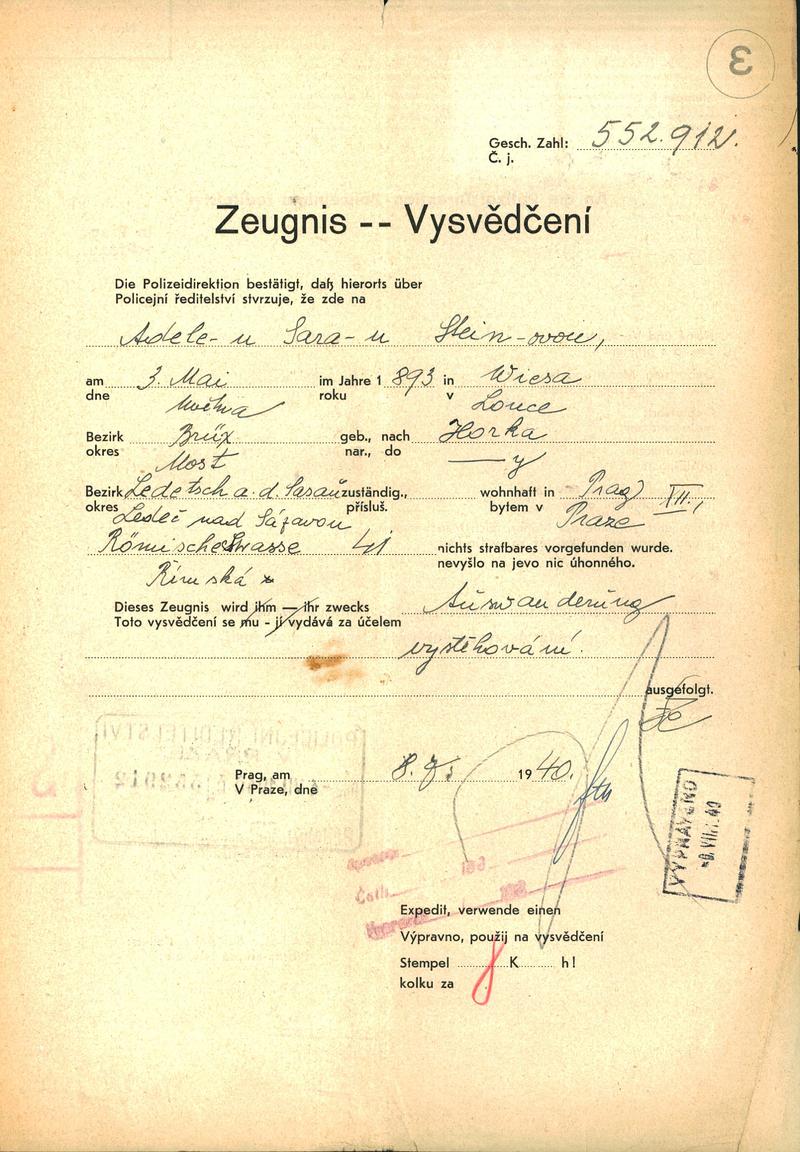 3
Gesch. Zahl: 552.912.
Č. j.
Zeugnis -- Vysvědčení
Die Polizeidirektion bestätigt, daß hierorts über
Policejní ředitelství stvrzuje, že zde na
Adele-u Sara-u Stein-ovou,
am 3. Mai im Jahre 1 893 in Wiesa
dne května roku v Louce
Bezirk Brüx geb., nach Horka
okres Most nar., do — y
Bezirk Ledetsch a. d. Sasau zuständig., wohnhaft in Prag XII.,
okres Ledeč nad Sázavou přísluš. bytem v Praze
Römische Strasse 41 nichts strafbares vorgefunden wurde.
Římská nevyšlo na jevo nic úhonného.
Dieses Zeugnis wird ihm — ihr zwecks Auswanderung
Toto vysvědčení se mu - jí vydává za účelem
vystěhování.
ausgefolgt.
Prag, am 8. 1940.
V Praze, dne
VYPRAVENO
VIII. 40
Expedit, verwende einen
Výpravno, použij na vysvědčení
Stempel 8 K h!
kolku za